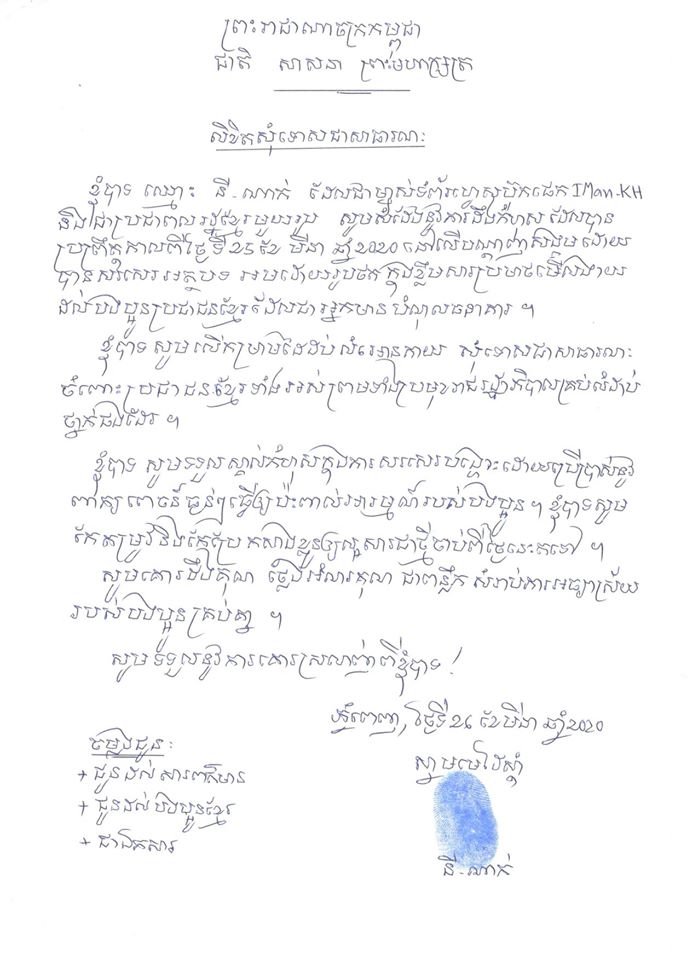 ព្រះរាជាណាចក្រកម្ពុជា
ជាតិ សាសនា ព្រះមហាក្សត្រ
លិខិតសុំទោសជាសាធារណៈ
ខ្ញុំបាទ ឈ្មោះ នី-ណាក់ ដែលជាម្ចាស់ទំព័រហ្វេសប៊ុកផេក IMan-KH
និងជាប្រជាពលរដ្ឋខ្មែរមួយរូប សូមសំដែងនូវការដឹងកំហុស ដែលបាន
ប្រព្រឹត្តកាលពីថ្ងៃទី 25 ខែ មីនា ឆ្នាំ 2020 នៅលើបណ្តាញសង្គមដោយ
បានសរសេរអត្ថបទ អមដោយរូបថត ក្នុងខ្លឹមសារប្រមាថមើលងាយ
ដល់បងប្អូនប្រជាជនខ្មែរដែលជាអ្នកមានបំណុលធនាគារ ។
ខ្ញុំបាទ សូមលើកម្រាមដៃដប់ លំអោនកាយ សុំទោសជាសាធារណៈ
ចំពោះប្រជាជនខ្មែរទាំងអស់ព្រមទាំងប្រមុខរាជរដ្ឋាភិបាលគ្រប់លំដាប់
ថ្នាក់ផងដែរ ។
ខ្ញុំបាទ សូមទទួលស្គាល់កំហុសក្នុងការសរសេរបង្ហោះដោយប្រើប្រាស់នូវ
ពាក្យពេចន៍ធ្ងន់ៗធ្វើឲ្យប៉ះពាល់អារម្មណ៍របស់បងប្អូន។ ខ្ញុំបាទសូម
កែតម្រូវនិងកែប្រែកសាងខ្លួនឲ្យល្អសារជាថ្មីចាប់ពីថ្ងៃនេះតទៅ ។
សូមគោរដឹងគុណ ថ្លែងអំណរគុណ ជាពន្លឹក សំរាប់ការអធ្យាស្រ័យ
របស់បងប្អូនគ្រប់គ្នា ។
សូមទទួលនូវការគោរពស្រលាញ់ពីខ្ញុំបាទ !
ភ្នំពេញ, ថ្ងៃទី 26 ខែមីនា ឆ្នាំ 2020
ស្នាមមេដៃស្តាំ
នី-ណាក់
ចម្លងជូន:
+ ជូនដល់សារព័ត៌មាន
+ ជូនដល់បងប្អូនខ្មែរ
+ ជាឯកសារ